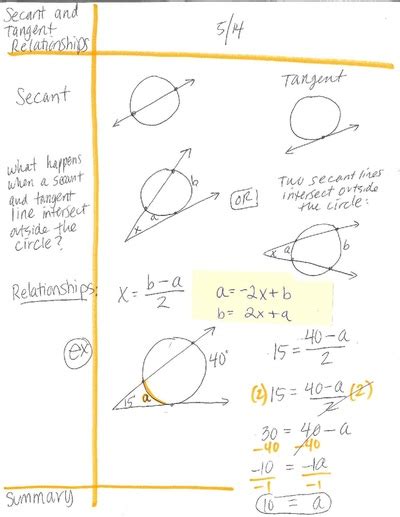 Secant and
Tangent
Relationships
5/14
Secant
Tangent
What happens
when a secant
and tangent
line intersect
outside the
circle?
x
a
b
OR!
Two secant lines
intersect outside
the circle:
x
a
b
Relationships:
x = b-a/2
a = -2x+b
b = 2x+a
ex
15
a
40°
15 = 40-a/2
(2) 15 = 40-a/2 (2)
30 = 40-a
-40 -40
-10 = -1a
-1 -1
10 = a
Summary